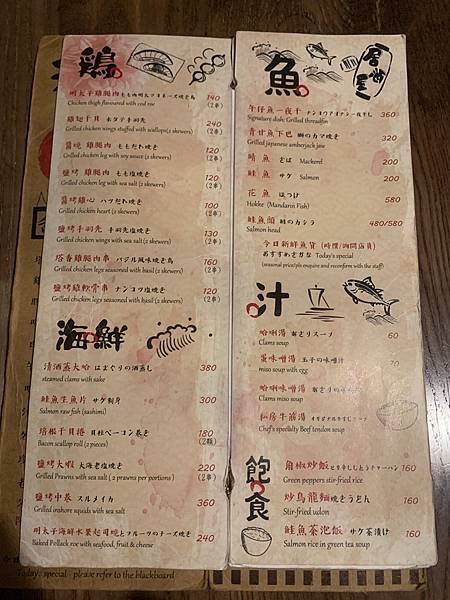 鷄
明太子雞腿肉 もも肉明太マヨネーズ焼き鳥 140
Chicken thigh flavoured with cod roe (2串)
雞翅干貝 ホタテ手羽先 240
Grilled chicken wings stuffed with scallops(2 skewers) (2串)
醬燒 雞腿肉 ももだれ焼き 120
Grilled chicken leg with soy sauce (2 skewers) (2串)
鹽烤 雞腿肉 もも塩焼き 120
Grilled chicken leg with sea salt (2 skewers) (2串)
醬烤雞心 ハツだれ焼き 100
Grilled chicken heart (2 skewers) (2串)
鹽烤手羽先 手羽先塩焼き 130
Grilled chicken wings with sea salt (2 skewers) (2串)
塔香雞腿肉串 バジル風味焼き鳥 160
Grilled chicken legs seasoned with basil (2 skewers) (2串)
鹽烤雞軟骨串 ナンコツ塩焼き 120
Grilled chicken legs seasoned with basil (2 skewers) (2串)
海鮮
清酒蒸大哈 はまぐりの酒蒸し 380
steamed clams with sake
鮭魚生魚片 サケ刺身 300
Salmon raw fish (sashimi)
培根干貝捲 貝柱ベーコン巻き 180
Bacon scallop roll (2 pieces) (2顆)
鹽烤大蝦 大海老塩焼き 220
Grilled Prawns with sea salt (2 prawns per portions) (2串)
鹽烤中卷 スルメイカ 360
Grilled inshore squids with sea salt
明太子海鮮水菓起司燒 とフルーツのチーズ焼き 240
Baked Pollack roe with seafood, fruit & cheese
魚
午仔魚一夜干 360
Signature dish: Grilled threadfin
青甘魚下巴 鰤のカマ焼き 260
Grilled japanese amberjack jaw
鯖魚 さば Mackerel 200
鮭魚 サケ Salmon 200
花魚 ほっけ 580
Hokke (Mandarin Fish)
鮭魚頭 鮭のカシラ 480/580
Salmon head
今日新鮮魚貨 (時價/詢問店員)
おすすめさかな Today's special
(seasonal price/pls enquire and reconfirm with the staff)
汁
哈唎湯 60
Clams soup
蛋味噌湯 玉子の味噌汁 70
miso soup with egg
哈唎味噌湯
Clams miso soup
私房牛筋湯
Chef's speciality Beef tendon soup
飽食
角椒炒飯 ピリ辛ししとうチャーハン 160
Green peppers stir-fried rice
炒烏龍麵 焼きうどん 160
Stir-fried udon
鮭魚茶泡飯 サケ茶漬け 160
Salmon rice in green tea soup
Today's special - please refer to the blackboard